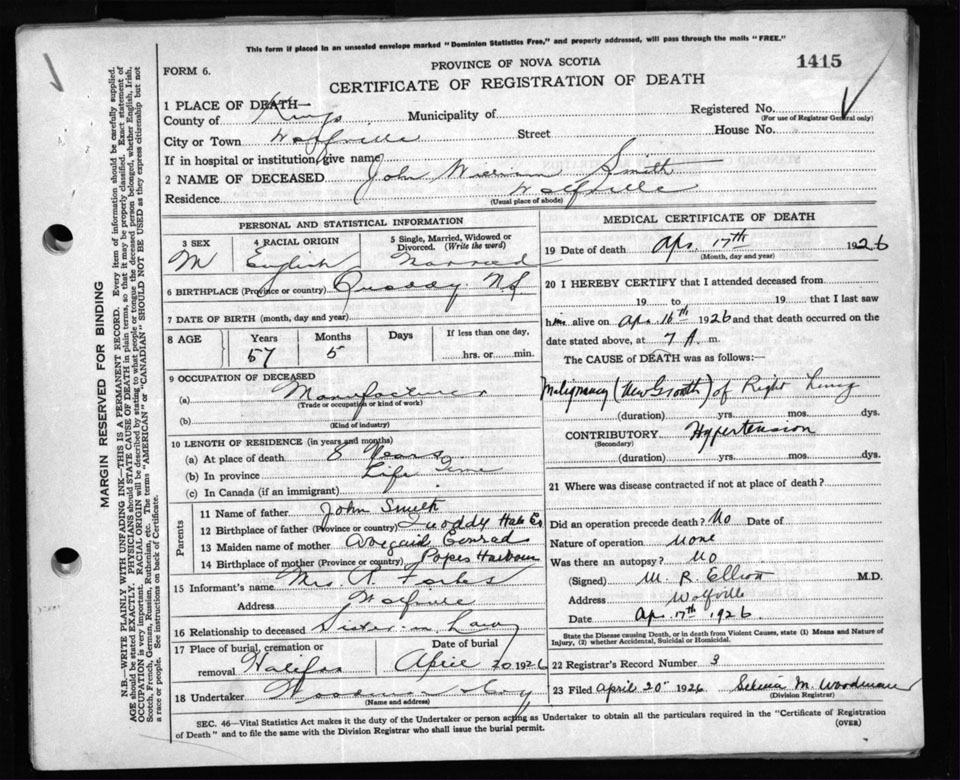 This form if placed in an unsealed envelope marked "Dominion Statistics Free," and properly addressed, will pass through the mails "FREE."
PROVINCE OF NOVA SCOTIA
FORM 6.
1415
CERTIFICATE OF REGISTRATION OF DEATH
1 PLACE OF DEATH—
Registered No.
(For use of Registrar General only)
County of Kings Municipality of
City or Town Wolfville Street House No.
If in hospital or institution, give name
2 NAME OF DECEASED John William Smith
Residence Wolfville
(Usual place of abode)
PERSONAL AND STATISTICAL INFORMATION
3 SEX 4 RACIAL ORIGIN 5 Single, Married, Widowed or Divorced. (Write the word)
M English Married
6 BIRTHPLACE (Province or country) Quoddy N.S
7 DATE OF BIRTH (month, day and year)
8 AGE Years Months Days If less than one day,
57 5 hrs. or min.
9 OCCUPATION OF DECEASED
(a) Manufacturer
(Trade or occupation or kind of work)
(b)
(Kind of industry)
10 LENGTH OF RESIDENCE (in years and months)
(a) At place of death 8 Years
(b) In province Life Time
(c) In Canada (if an immigrant)
Parents
11 Name of father John Smith
12 Birthplace of father (Province or country) Quoddy Hafx Co
13 Maiden name of mother Conrad
14 Birthplace of mother (Province or country) Popes Harbour
15 Informant's name Mrs. Forbes
Address Wolfville
16 Relationship to deceased Sister in Law
17 Place of burial, cremation or removal Halifax
Date of burial April 20 1926
18 Undertaker
(Name and address)
MEDICAL CERTIFICATE OF DEATH
19 Date of death Apr. 17th 1926
(Month, day and year)
20 I HEREBY CERTIFY that I attended deceased from
19 to 19 that I last saw
him alive on Apr 16th 1926 and that death occurred on the
date stated above, at 7 A. m.
The CAUSE OF DEATH was as follows:—
Malignancy (New Growth) of Right Lung
(duration) yrs. mos. dys.
CONTRIBUTORY Hypertension
(Secondary)
(duration) yrs. mos. dys.
21 Where was disease contracted if not at place of death?
Did an operation precede death? No Date of
Nature of operation None
Was there an autopsy? No
(Signed) M. R. Elliott M.D.
Address Wolfville
Date Apr. 17th 1926
State the Disease causing Death, or in death from Violent Causes, state (1) Means and Nature of Injury, (2) whether Accidental, Suicidal or Homicidal.
22 Registrar's Record Number 3
23 Filed April 20" 1926 M. Woodman
(Division Registrar)
SEC. 46—Vital Statistics Act makes it the duty of the Undertaker or person acting as Undertaker to obtain all the particulars required in the "Certificate of Registration
of Death" and to file the same with the Division Registrar who shall issue the burial permit.
(OVER)
MARGIN RESERVED FOR BINDING
N.B.—WRITE PLAINLY WITH UNFADING INK—THIS IS A PERMANENT RECORD. Every item of information should be carefully supplied.
AGE should be stated EXACTLY. PHYSICIANS should STATE CAUSE OF DEATH in plain terms, so that it may be properly classified. Exact statement of
OCCUPATION is very important. RACIAL ORIGIN will be described by stating to what people or tongue the deceased person belonged, whether English, Irish,
Scotch, French, German, Russian, Ruthenian, etc. The terms "AMERICAN" or "CANADIAN" SHOULD NOT BE USED as they express citizenship but not
a race or people. See instructions on back of Certificate.